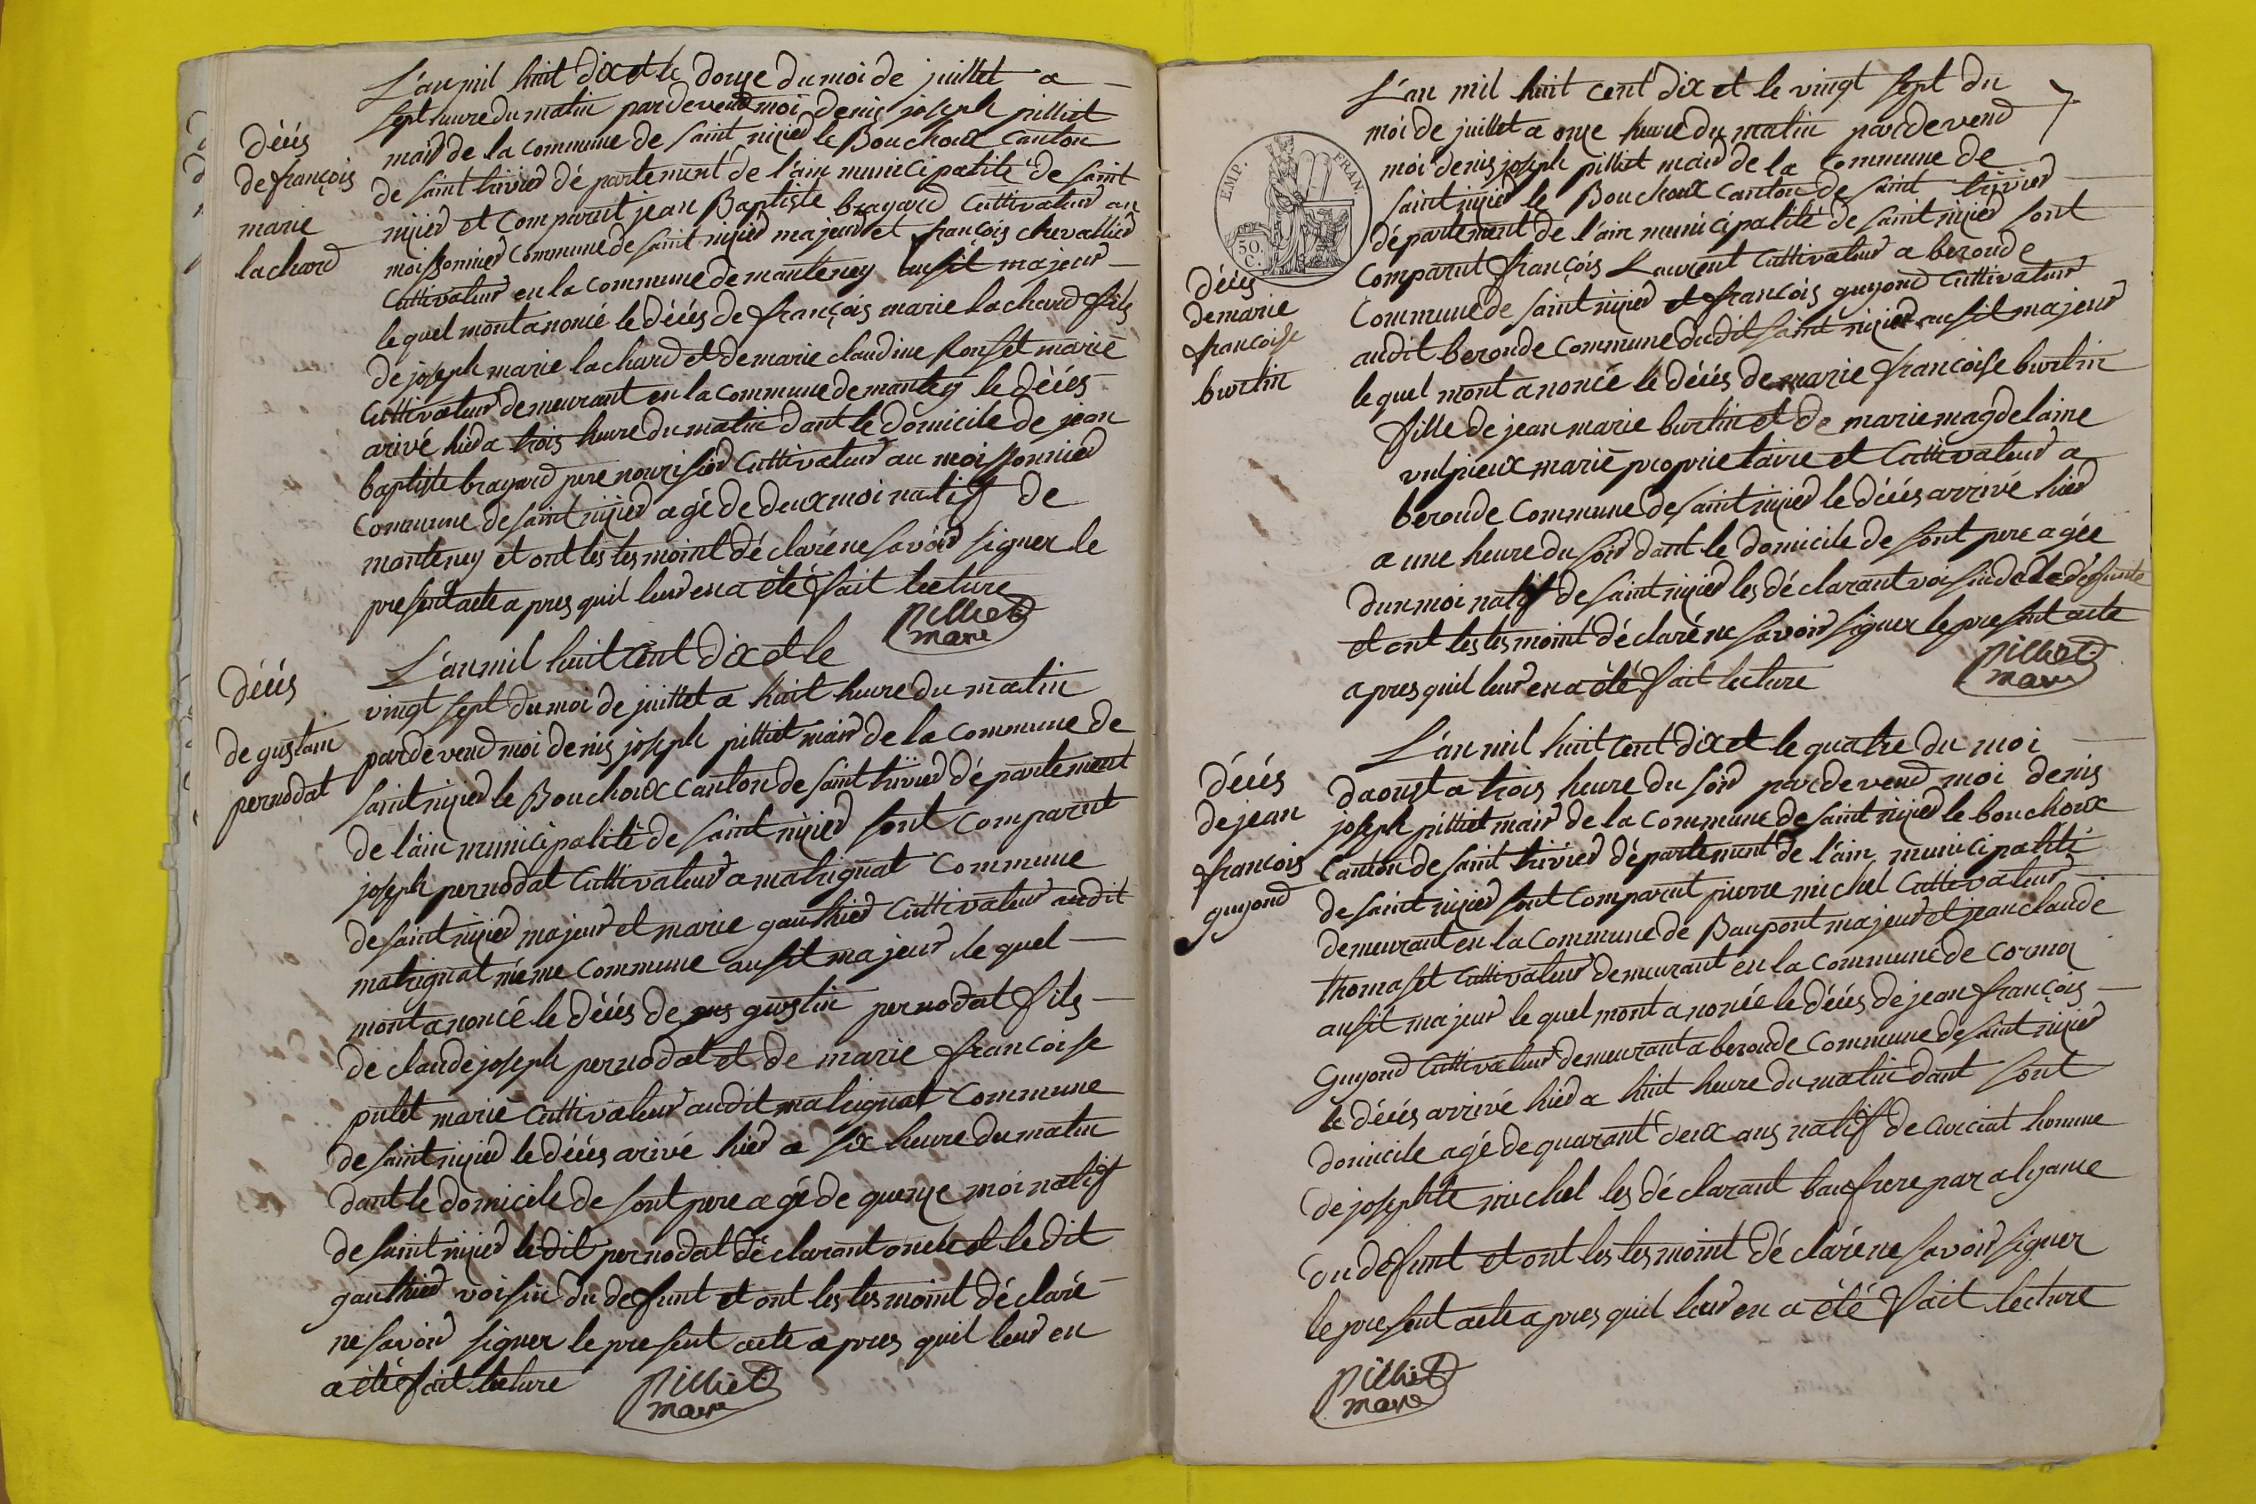 L'an mil huit dix et le douze du moi de juillet a
sept heure du matin pardevend moi denis joseph pilliet
maid de la commune de saint nizied le Bouchoux canton
de saint trivied département de l'ain municipalité de saint
nizied et comparut jean Baptiste brayard cultivateur au
moissonnied commune de saint nizied majeur et françois chevallied
cultivateur en la commune de manteney ausit majeur
le quel mont anoncé le décés de françois marie lachard fils
de joseph marie lachard et de marie claudine ronset marié
cultivateur demeurant en la commune de mantey le décés
arivé hied a trois heure du matin dant le domicile de jean
baptiste brayard pere nourisied cultivateur au moissonnied
commune de saint nizied agé de deux moi natif de
manteney et ont les tesmoint déclaré ne savoid signer le
present acte apres quil leur en a été fait lecture
pilliet
maire
décés
de françois
marie
lachard
L'an mil huit cent dix et le
vingt sept du moi de juillet a huit heure du matin
pardevend moi denis joseph pilliet maid de la commune de
saint nizied le Bouchoux canton de saint trivied département
de l'ain municipalité de saint nizied sont comparut
joseph pernodat cultivateur a matrignat commune
de saint nizied majeur et marie gauthied cultivateur audit
matrignat méme commune ausit majeur le quel
mont anoncé le décés de gus gustin pernodat fils
de claude joseph pernodat et de marie francoise
putet marié cultivateur audit matrignat commune
de saint nizied le décés arivé hied a six heure du matin
dant le domicile de sont pere agé de quenze moi natif
de saint nizied le dit pernodat déclarant oncle et le dit
gauthied voisin du defunt et ont les tesmoint déclaré
ne savoid signer le present acte apres quil leur en
a été fait lecture
pilliet
maire
décés
de gustain
pernodat
7
L'an mil huit cent dix et le vingt sept du
moi de juillet a onze heure du matin pardevend
moi denis joseph pilliet maid de la commune de
saint nizied le Bouchoux canton de saint trivied
département de l'ain municipalité de saint nizied sont
comparut françois Laurent cultivateur a beronde
commune de saint nizied et francois guyond cultivateur
audit beronde commune dudit saint nizied ausit majeur
le quel mont anoncé le décés de marie francoise burtin
fille de jean marie burtin et de marie magdelaine
vulpieux marié proprietaire et cultivateur a
beronde commune de saint nizied le décés arrivé hied
a une heure du soid dant le domicile de sont pere agée
dun moi natif de saint nizied les déclarant voisin de la défunte
et ont les tesmoint déclaré ne savoir signer le present acte
apres quil leur en a été fait lecture
pilliet
maire
EMP. FRAN.
50 C.
décés
de marie
francoise
burtin
L'an mil huit cent dix et le quatre du moi
daoust a trois heure du soid pardevend moi denis
joseph pilliet maid de la commune de saint nizied le bouchoux
canton de saint trivied département de l'ain municipalité
de saint nizied sont comparut pierre michel cultivateur
demeurant en la commune de Baupont majeur et jean claude
thomaset cultivateur demeurant en la commune de cormoz
ausit majeur le quel mont anoncé le décés de jean françois
Guyond cultivateur demeurant a beronde commune de saint nizied
le décés arrivé hied a huit heure du matin dant sont
domicile agé de quarant deux ans natif de curciat homme
de josephte michel les déclarant baufrere par alyance
du defunt et ont les tesmoint déclaré ne savoir signer
le present acte apres quil leur en a été fait lecture
pilliet
maire
décés
de jean
francois
guyond